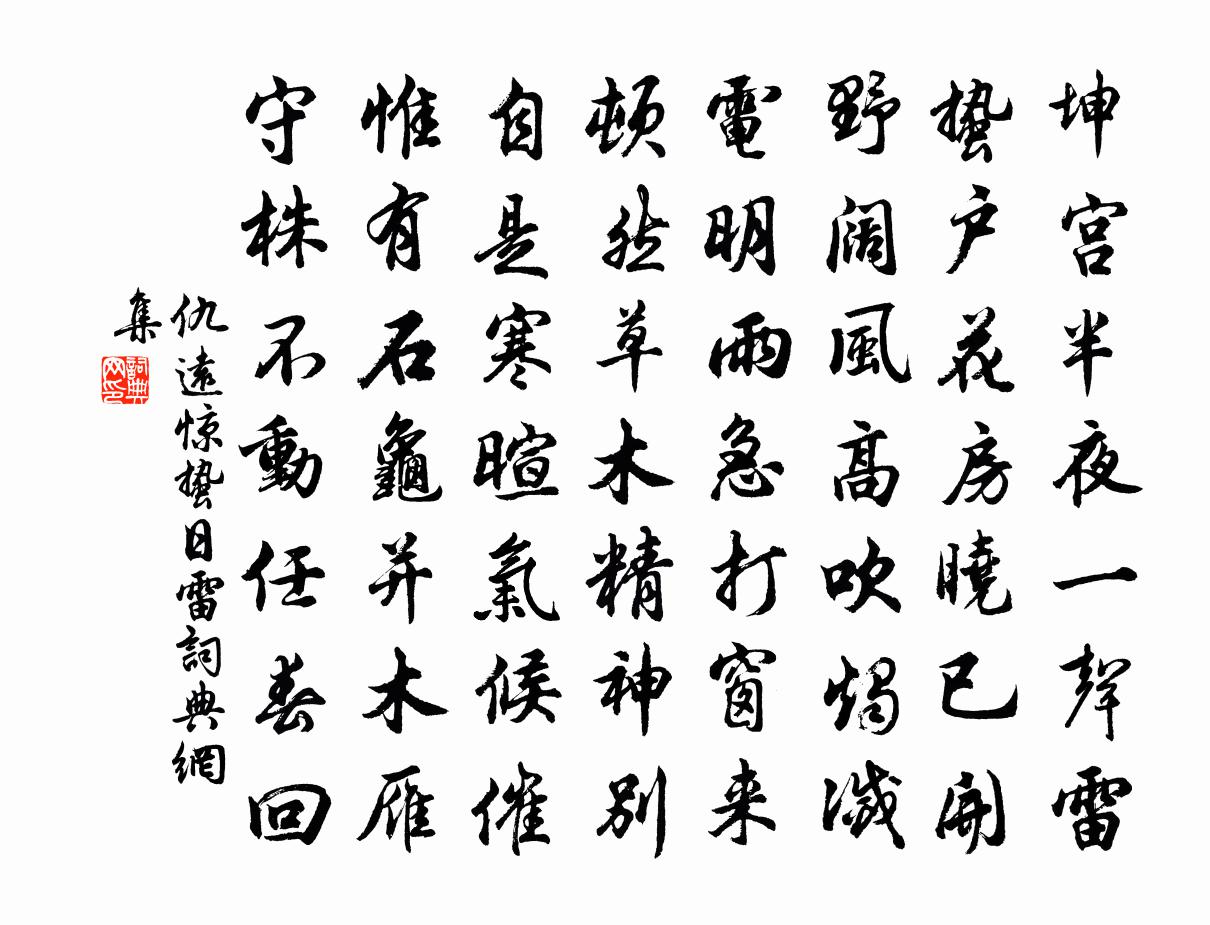 坤宫半夜一聲雷
蛰户花房曉已開
野阔風高吹燭滅
電明雨急打窗来
頓然草木精神别
自是寒暄氣候催
惟有石龜并木雁
守株不動任春回
仇遠惊蛰日雷詞典網
集
詞典
网印